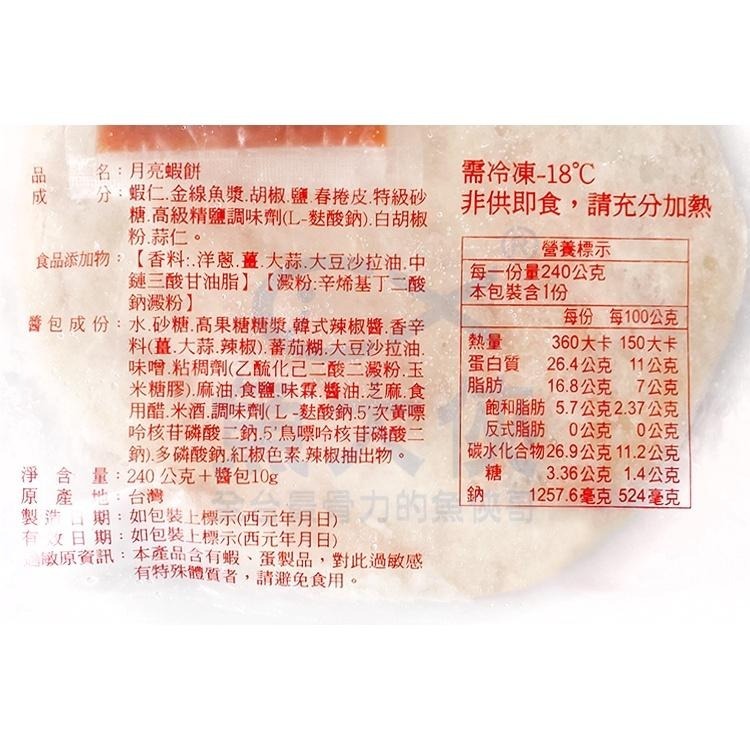 品名：月亮蝦餅
成分：蝦仁.金線魚漿.胡椒.鹽.春捲皮.特級砂
糖.高級精鹽調味劑(L-麩酸鈉).白胡椒
粉.蒜仁。
食品添加物：【香料:.洋蔥.薑.大蒜.大豆沙拉油.中
鏈三酸甘油脂】【澱粉:辛烯基丁二酸
鈉澱粉】
醬包成份：水.砂糖.高果糖糖漿.韓式辣椒醬.香辛
料(薑.大蒜.辣椒).蕃茄糊.大豆沙拉油.
味噌.粘稠劑(乙醯化己二酸二澱粉.玉
米糖膠).麻油.食鹽.味霖.醬油.芝麻.食
用醋.米酒.調味劑(L-麩酸鈉.5'次黃嘌
呤核苷磷酸二鈉.5'鳥嘌呤核苷磷酸二
鈉).多磷酸鈉.紅椒色素.辣椒抽出物。
淨含量：240公克＋醬包10g
原產地：台灣
製造日期：如包裝上標示(西元年月日)
有效日期：如包裝上標示(西元年月日)
過敏原資訊：本產品含有蝦、蛋製品，對此過敏感
有特殊體質者，請避免食用。
需冷凍-18℃
非供即食，請充分加熱
營養標示
每一份量240公克
本包裝含1份
每份 每100公克
熱量 360大卡 150大卡
蛋白質 26.4公克 11公克
脂肪 16.8公克 7公克
飽和脂肪 5.7公克 2.37公克
反式脂肪 0公克 0公克
碳水化合物 26.9公克 11.2公克
糖 3.36公克 1.4公克
鈉 1257.6毫克 524毫克
全台最骨力的魚俠哥